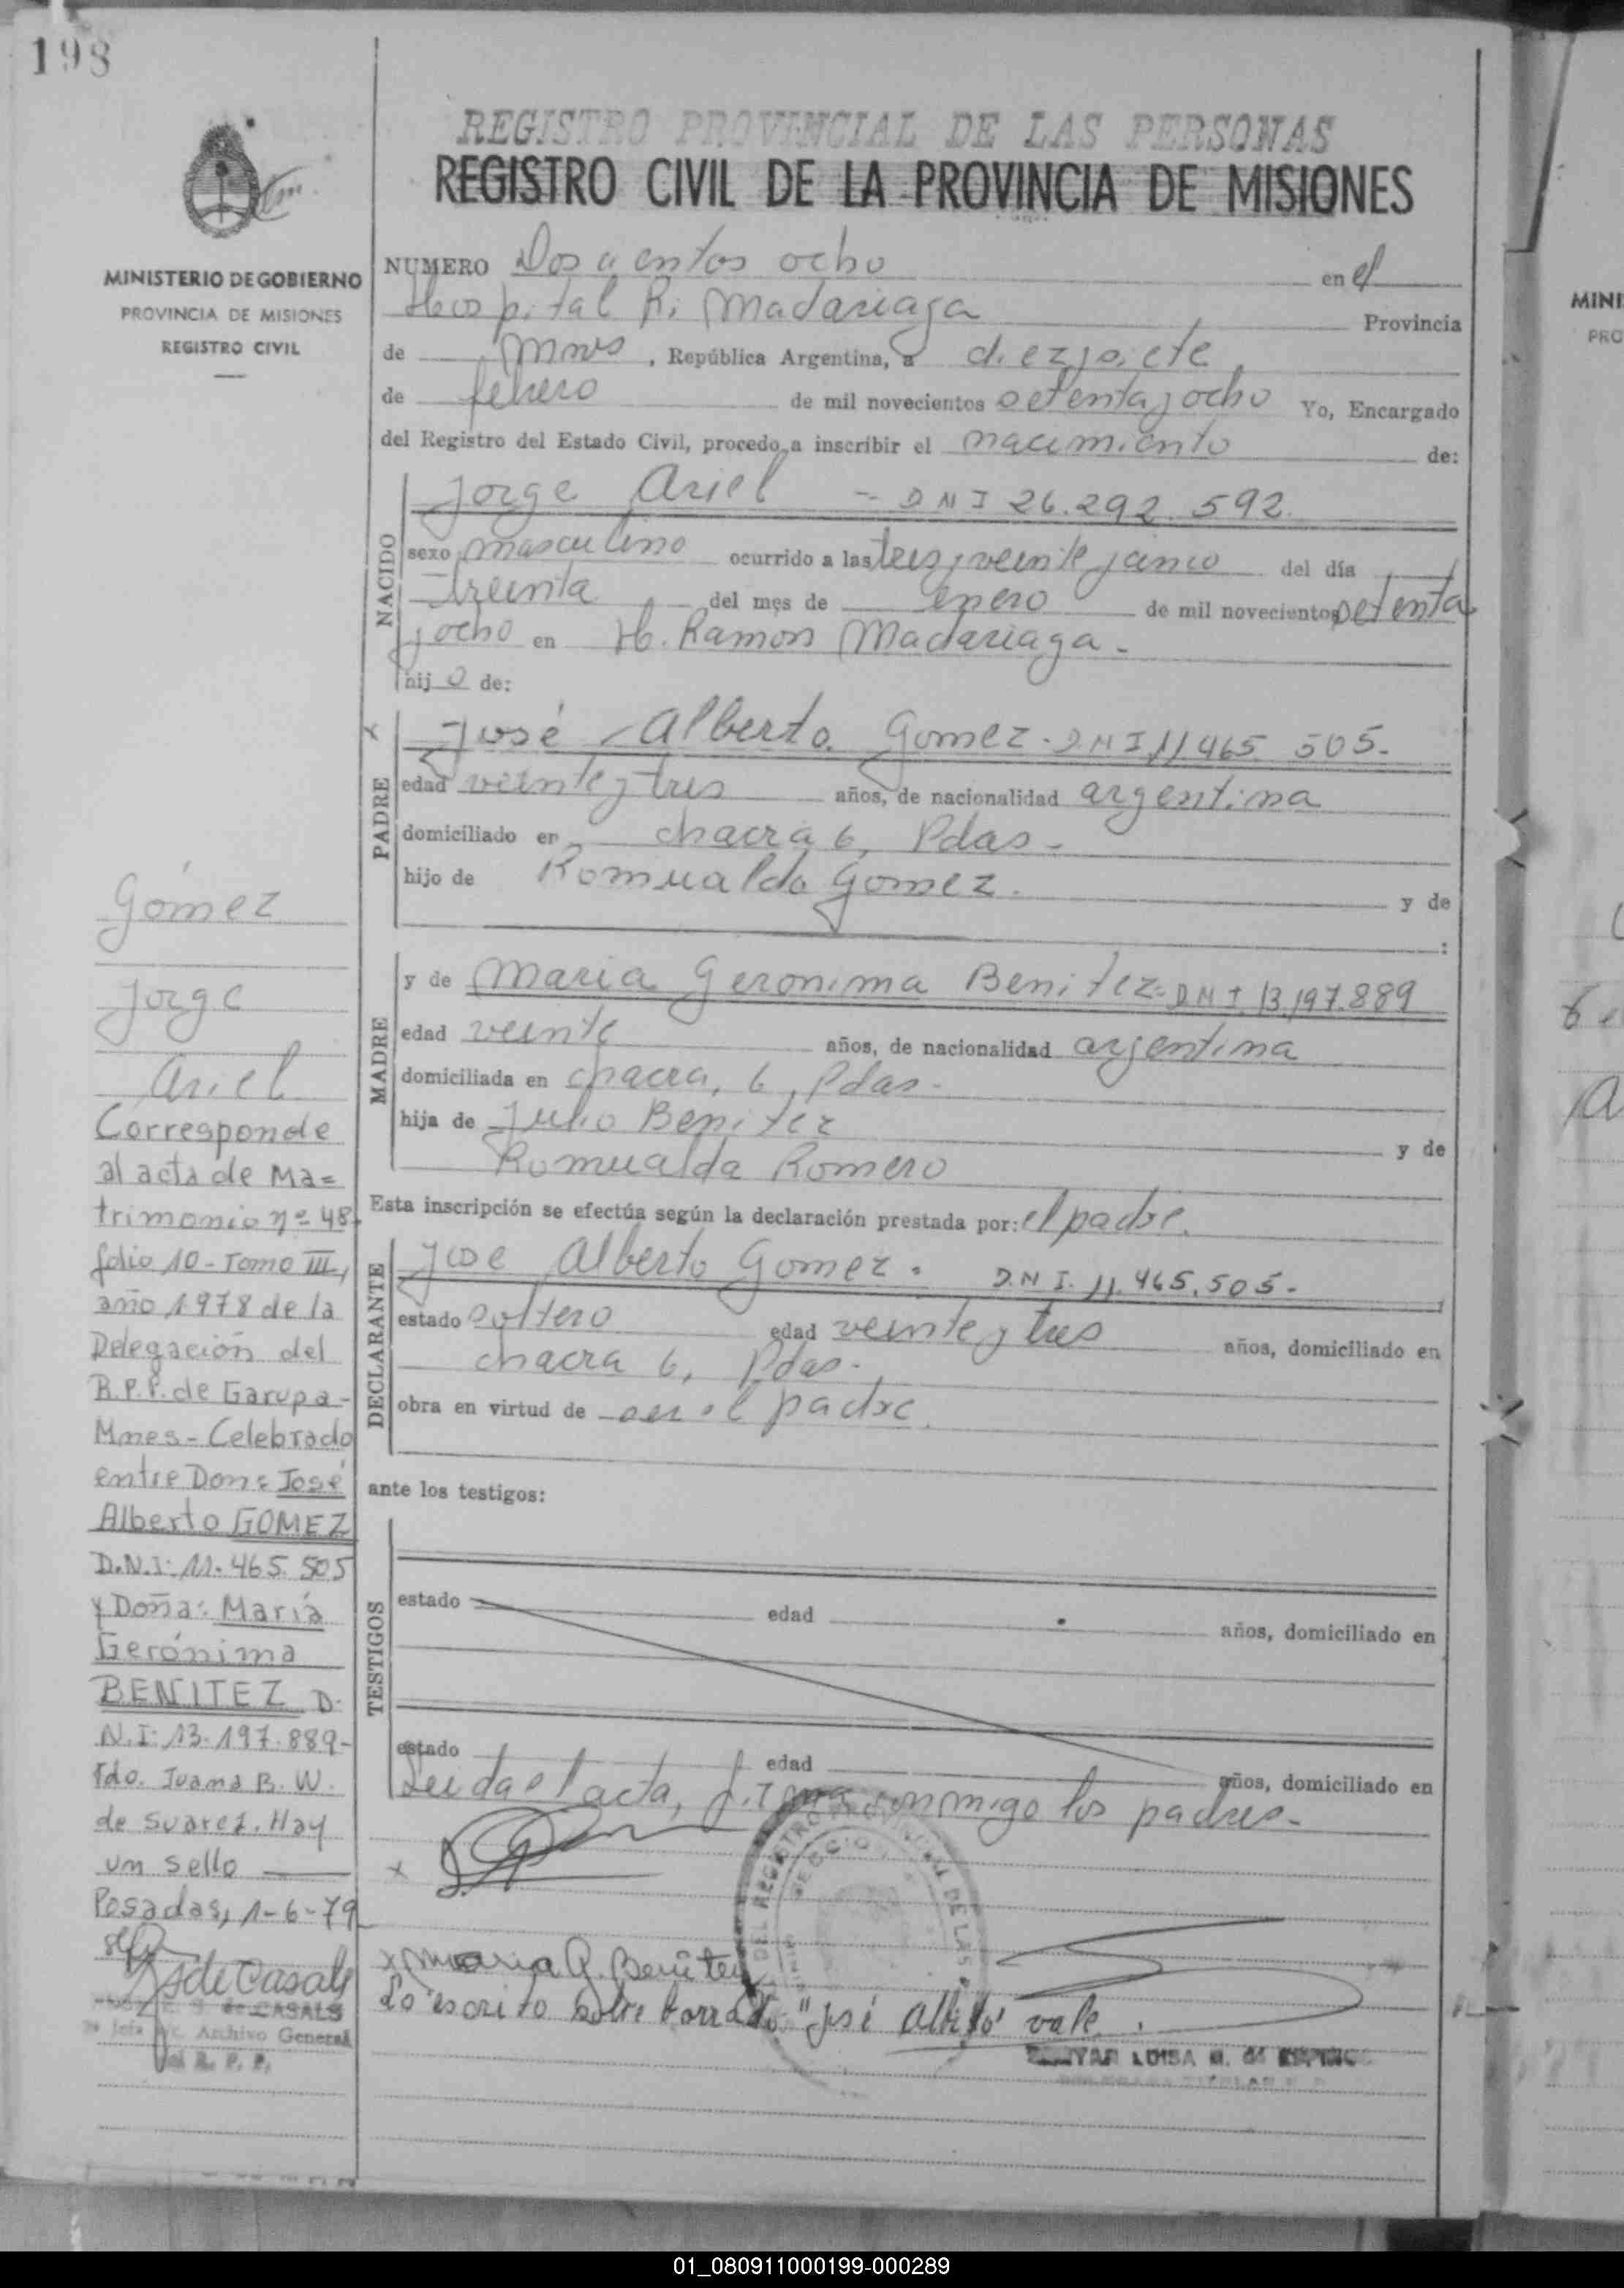 198
REGISTRO PROVINCIAL DE LAS PERSONAS
REGISTRO CIVIL DE LA PROVINCIA DE MISIONES
MINISTERIO DE GOBIERNO
PROVINCIA DE MISIONES
REGISTRO CIVIL
NUMERO Doscientos ocho en el
Hospital R. Madariaga Provincia
de Mnes, República Argentina, a diezysiete
de febrero de mil novecientos setenta y ocho Yo, Encargado
del Registro del Estado Civil, procedo a inscribir el nacimiento de:
NACIDO
Jorge Ariel - DNI 26.292.592.
sexo masculino ocurrido a las tres y veinte y cinco del día
treinta del mes de enero de mil novecientos setenta
y ocho en H. Ramon Madariaga.
hijo de:
PADRE
x José Alberto Gomez - DNI 11.465.505.
edad veinte y tres años, de nacionalidad argentina
domiciliado en chacra 6, Pdas.
hijo de Romualda Gomez. y de
:
MADRE
y de Maria Geronima Benitez - DNI. 13.197.889
edad veinte años, de nacionalidad argentina
domiciliada en chacra, 6, Pdas.
hija de Julio Benitez y de
Romualda Romero
Esta inscripción se efectúa según la declaración prestada por: el padre.
DECLARANTE
Jose Alberto Gomez. D.N.I. 11.465.505.
estado soltero edad veinte y tres años, domiciliado en
chacra 6, Pdas.
obra en virtud de ser el padre.
ante los testigos:
TESTIGOS
estado edad años, domiciliado en
estado edad años, domiciliado en
Leida el acta, firma conmigo los padres.
x
x Maria G. Benitez
Lo escrito sobre borrado "José Alberto" vale.
LUISA
Gómez
Jorge
Ariel
Corresponde
al acta de Ma=
trimonio nº 48,
folio 10 - Tomo III,
año 1978 de la
Delegación del
R.P.P. de Garupa -
Mnes - Celebrado
entre Don: José
Alberto GOMEZ
D.N.I: 11.465.505
y Doña: María
Gerónima
BENITEZ D.
N.I: 13.197.889-
Fdo. Juana B. W.
de Suarez. Hay
un sello
Posadas, 1-6-79
de Casals
de CASALS
Archivo General
R. P. P.
MINI
PRO
01_080911000199-000289